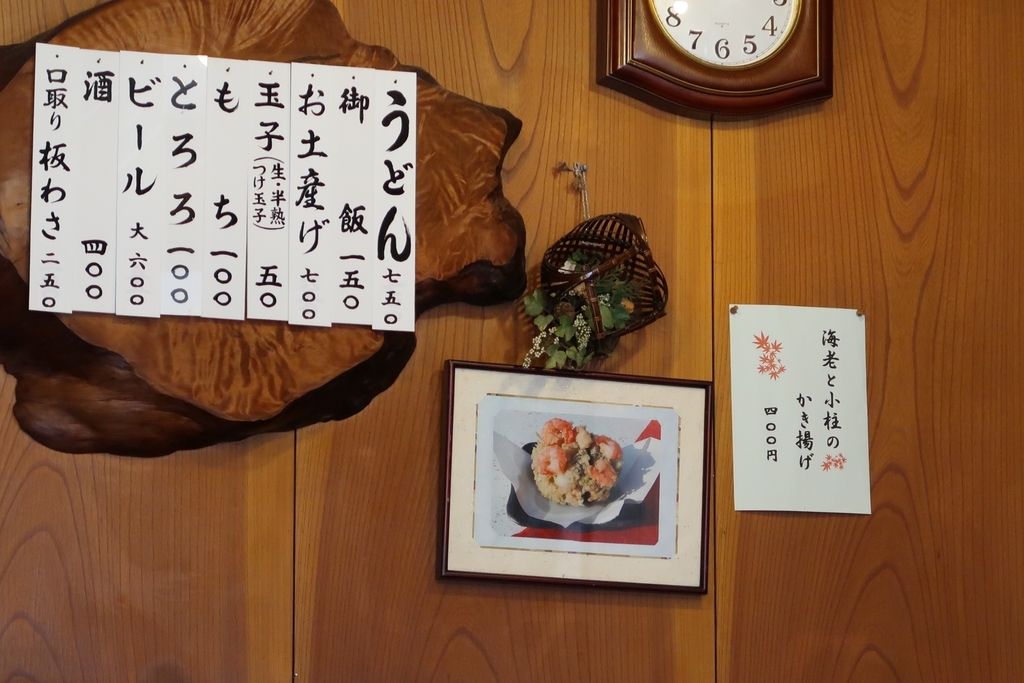 うどん 七五〇
御飯 一五〇
お土産げ 七〇〇
玉子(生・半熟
つけ玉子) 五〇
もち 一〇〇
とろろ 一〇〇
ビール 大 六〇〇
酒 四〇〇
口取り 板わさ 二五〇
8 7 6 5 4
海老と小柱の
かき揚げ
四〇〇円